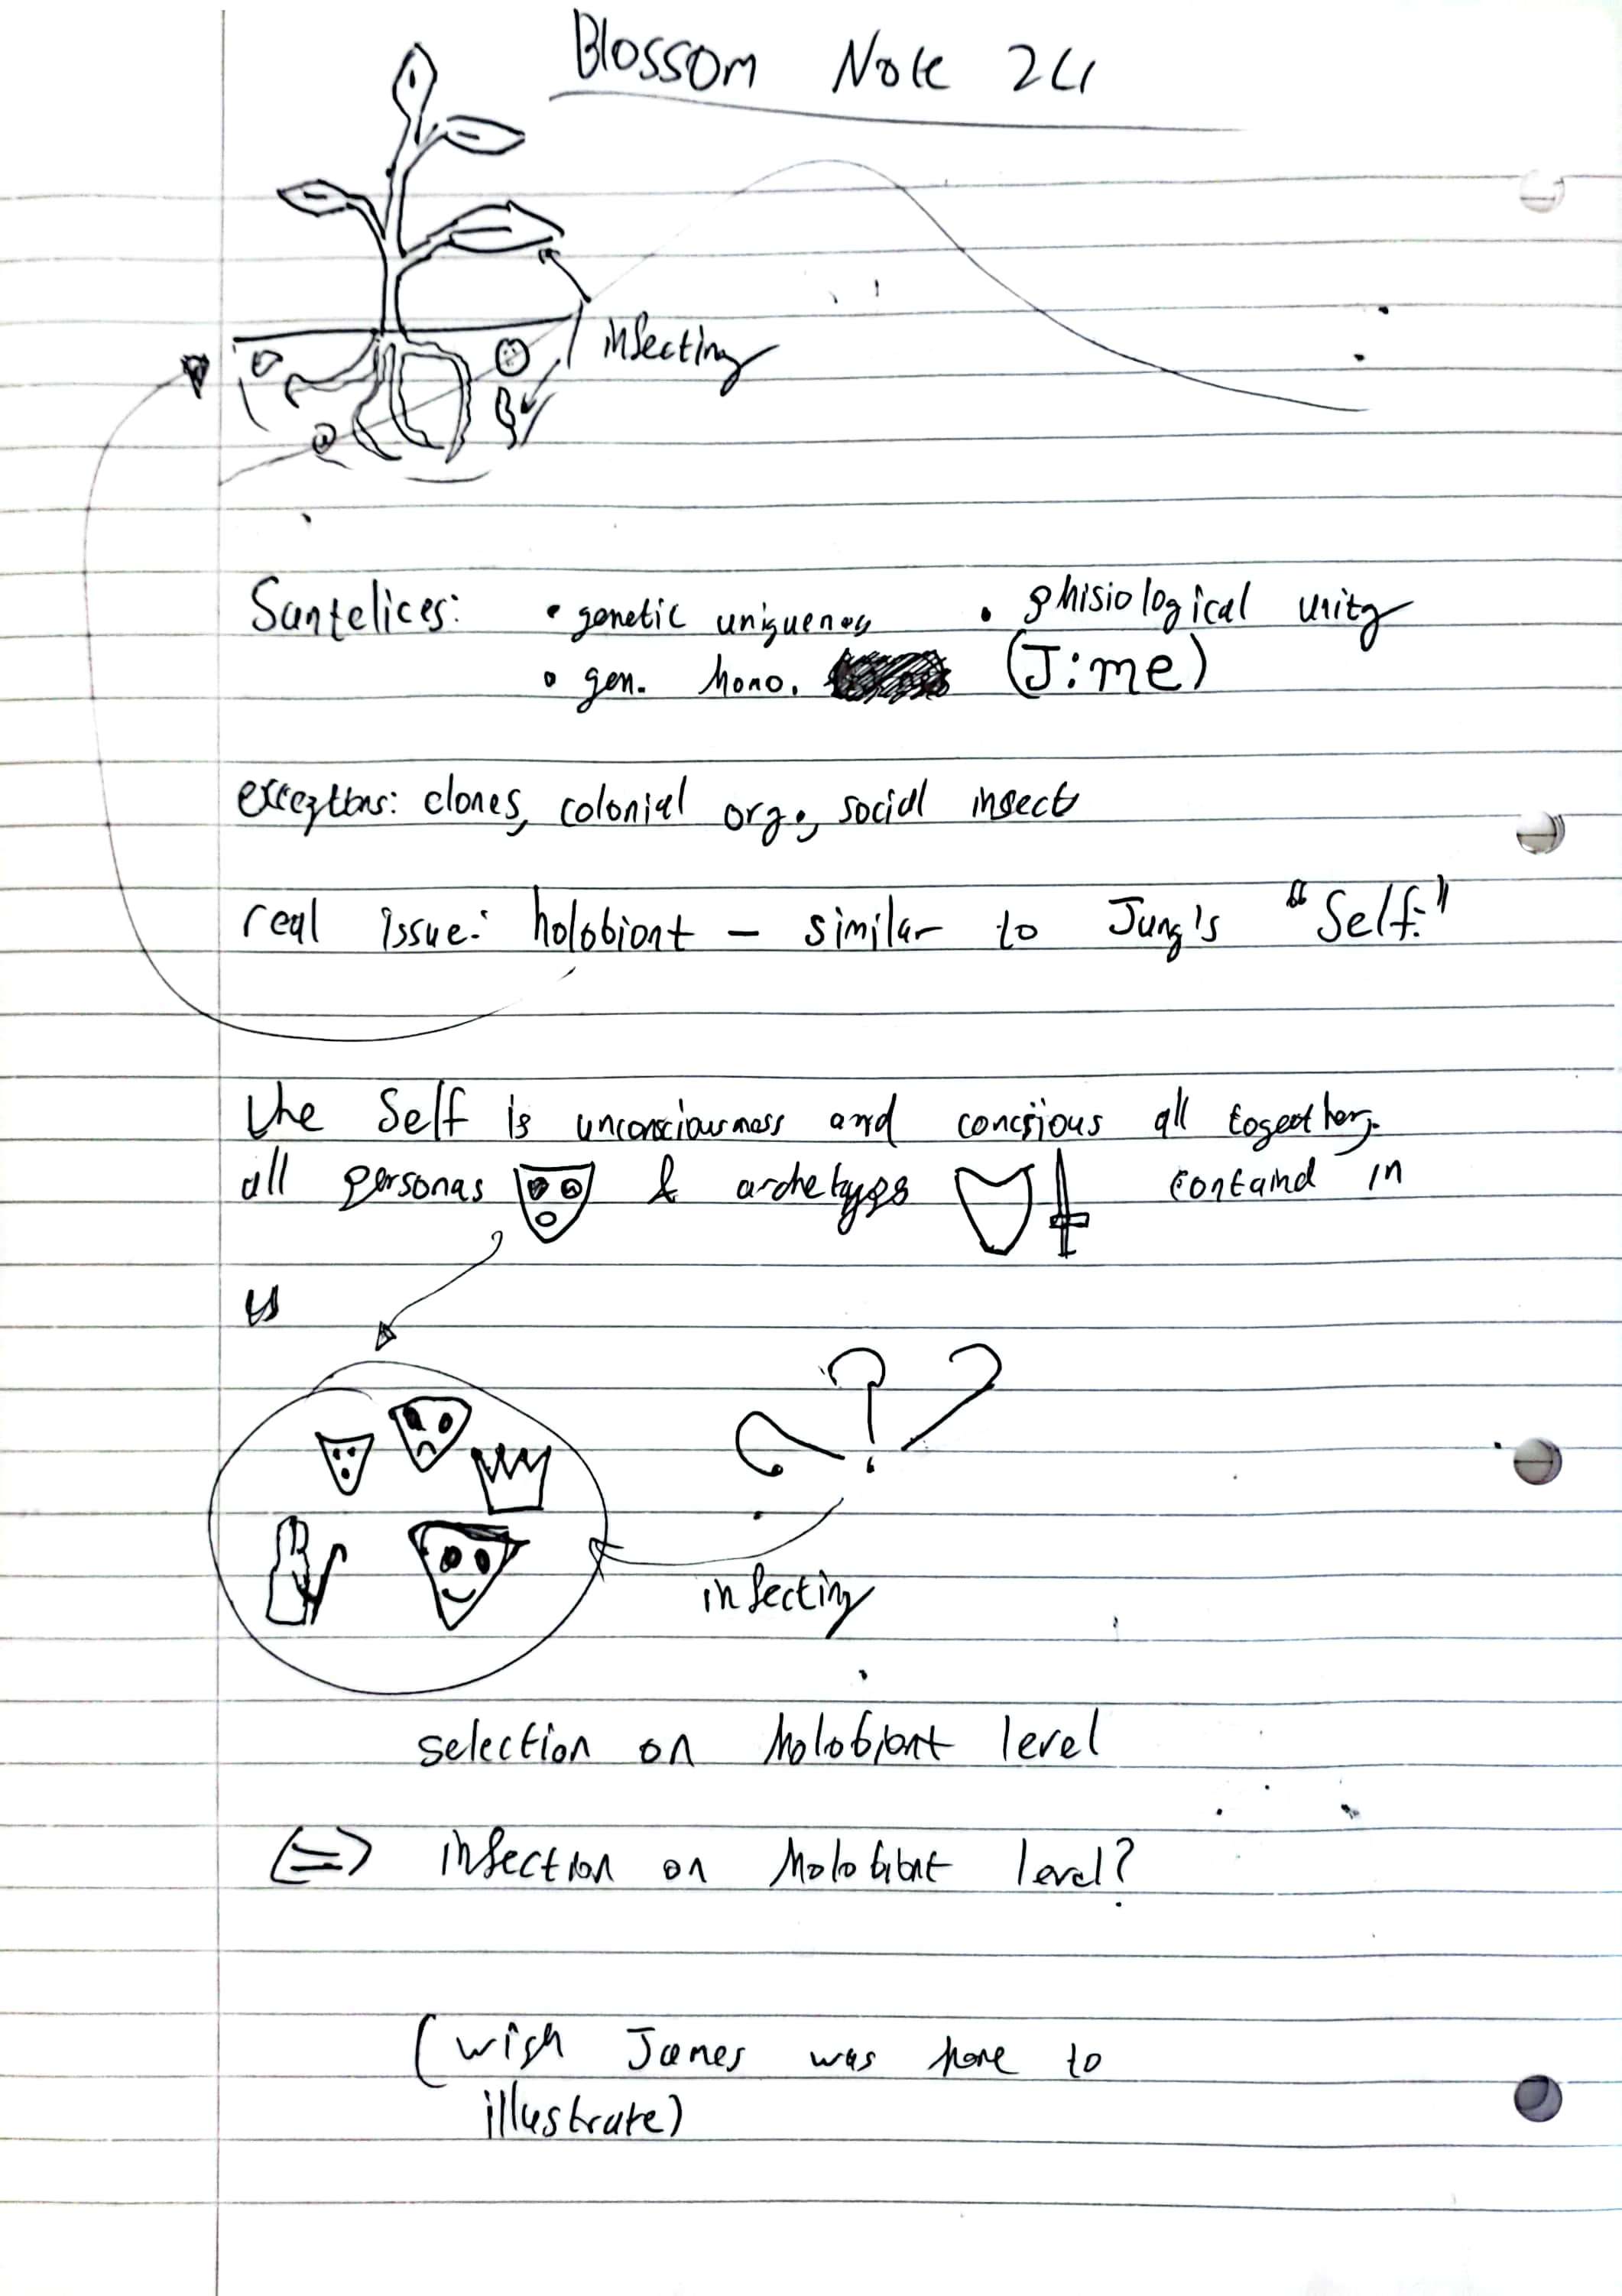 Blossom Note 24
infecting
Santelices: • genetic uniqueness • phisiological unity
• gen. homo. (J:me)
exceptions: clones, colonial org., social insects
real issue: holobiont – similar to Jung's "Self."
the Self is unconsciousness and conscious all together.
all personas & archetypes contained in
us
infecting
selection on holobiont level
(=> infection on holobiont level?
(wish James was here to
illustrate)